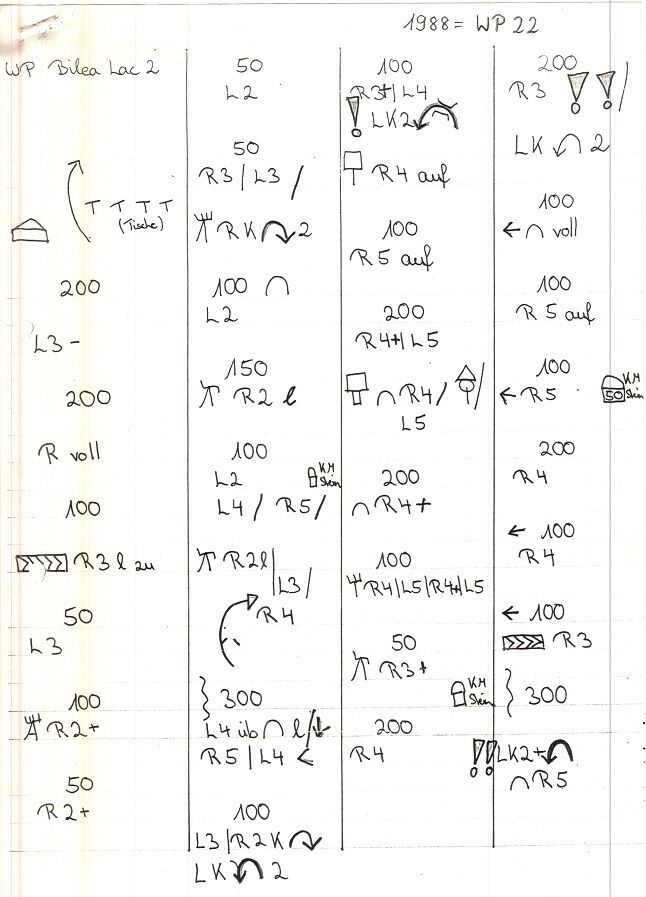 1988 = WP 22
WP Bilea Lac 2
T T T T
(Tische)
200
L3 -
200
R voll
100
R3 l zu
50
L3
100
R2+
50
R2+
50
L2
50
R3 | L3 /
RK 2
100 ∩
L2
150
R2 l
100
L2
KM
Stein
L4 / R5 /
R2l |
L3 /
R4
300
L4 üb ∩ l / ↓
R5 | L4 <
100
L3 | R2K
LK 2
100
R3+ | L4
! LK2
R4 auf
100
R5 auf
200
R4+ | L5
∩ R4 /
L5
200
∩ R4+
100
R4 | L5 | R4+ | L5
50
R3+
KM
Stein
200
R4
200
R3 ! ! /
LK 2
100
← ∩ voll
100
R5 auf
100
← R5
50
KM
Stein
200
R4
← 100
R4
← 100
R3
300
!! LK2+
∩ R5